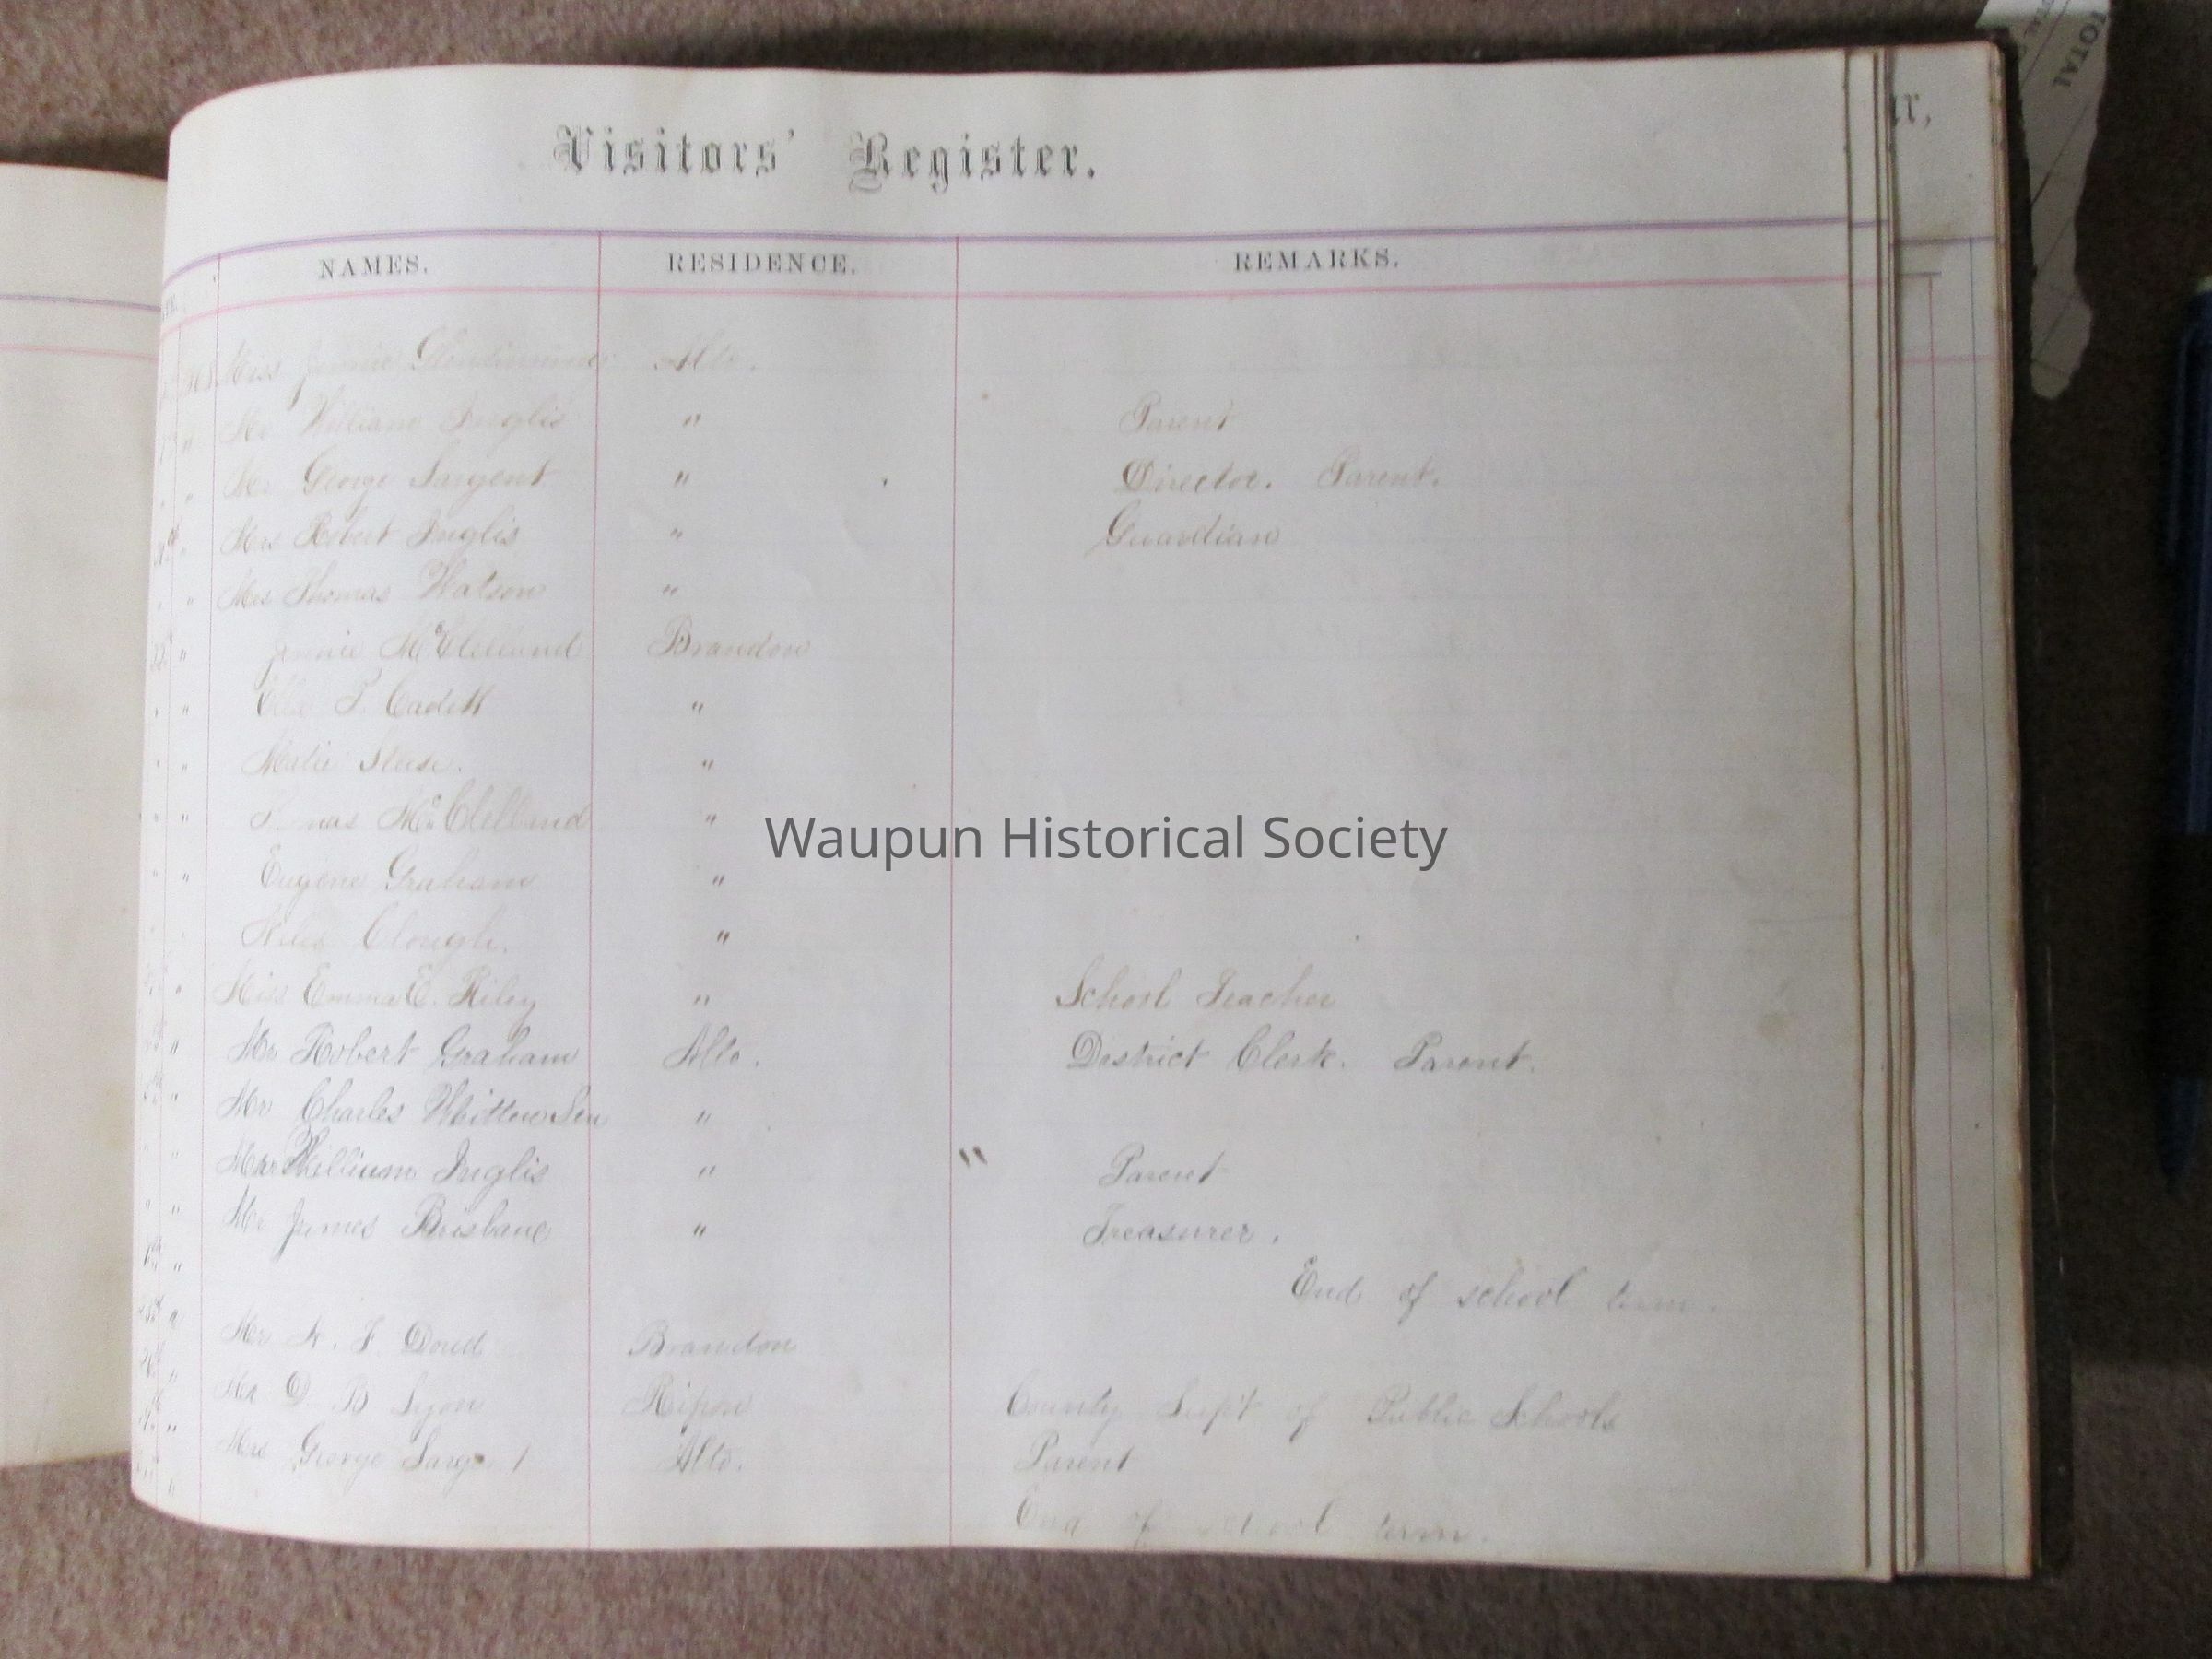 Visitors' Register.
NAMES. RESIDENCE. REMARKS.
Miss Jennie Glendinning Alto.
Mr William Inglis " Parent
Mr George Sargent " Director. Parent.
Mrs Robert Inglis " Guardian
Mrs Thomas Watson "
Jennie McClelland Brandon
Ella T. Cadett "
Matie Steese. "
Thomas McClelland "
Eugene Graham "
Clough. "
Miss Emma E. Riley " School Teacher
Mr Robert Graham Alto. District Clerk. Parent.
Mr Charles Whitton Sen "
William Inglis " " Parent
Mr James Brisbane " Treasurer.
End of school term.
Mr A. F. Doud Brandon
Mr D B Lyon Ripon County Supt of Public Schools
Mrs George Sargent Alto. Parent
End of school term.
Waupun Historical Society
TOTAL